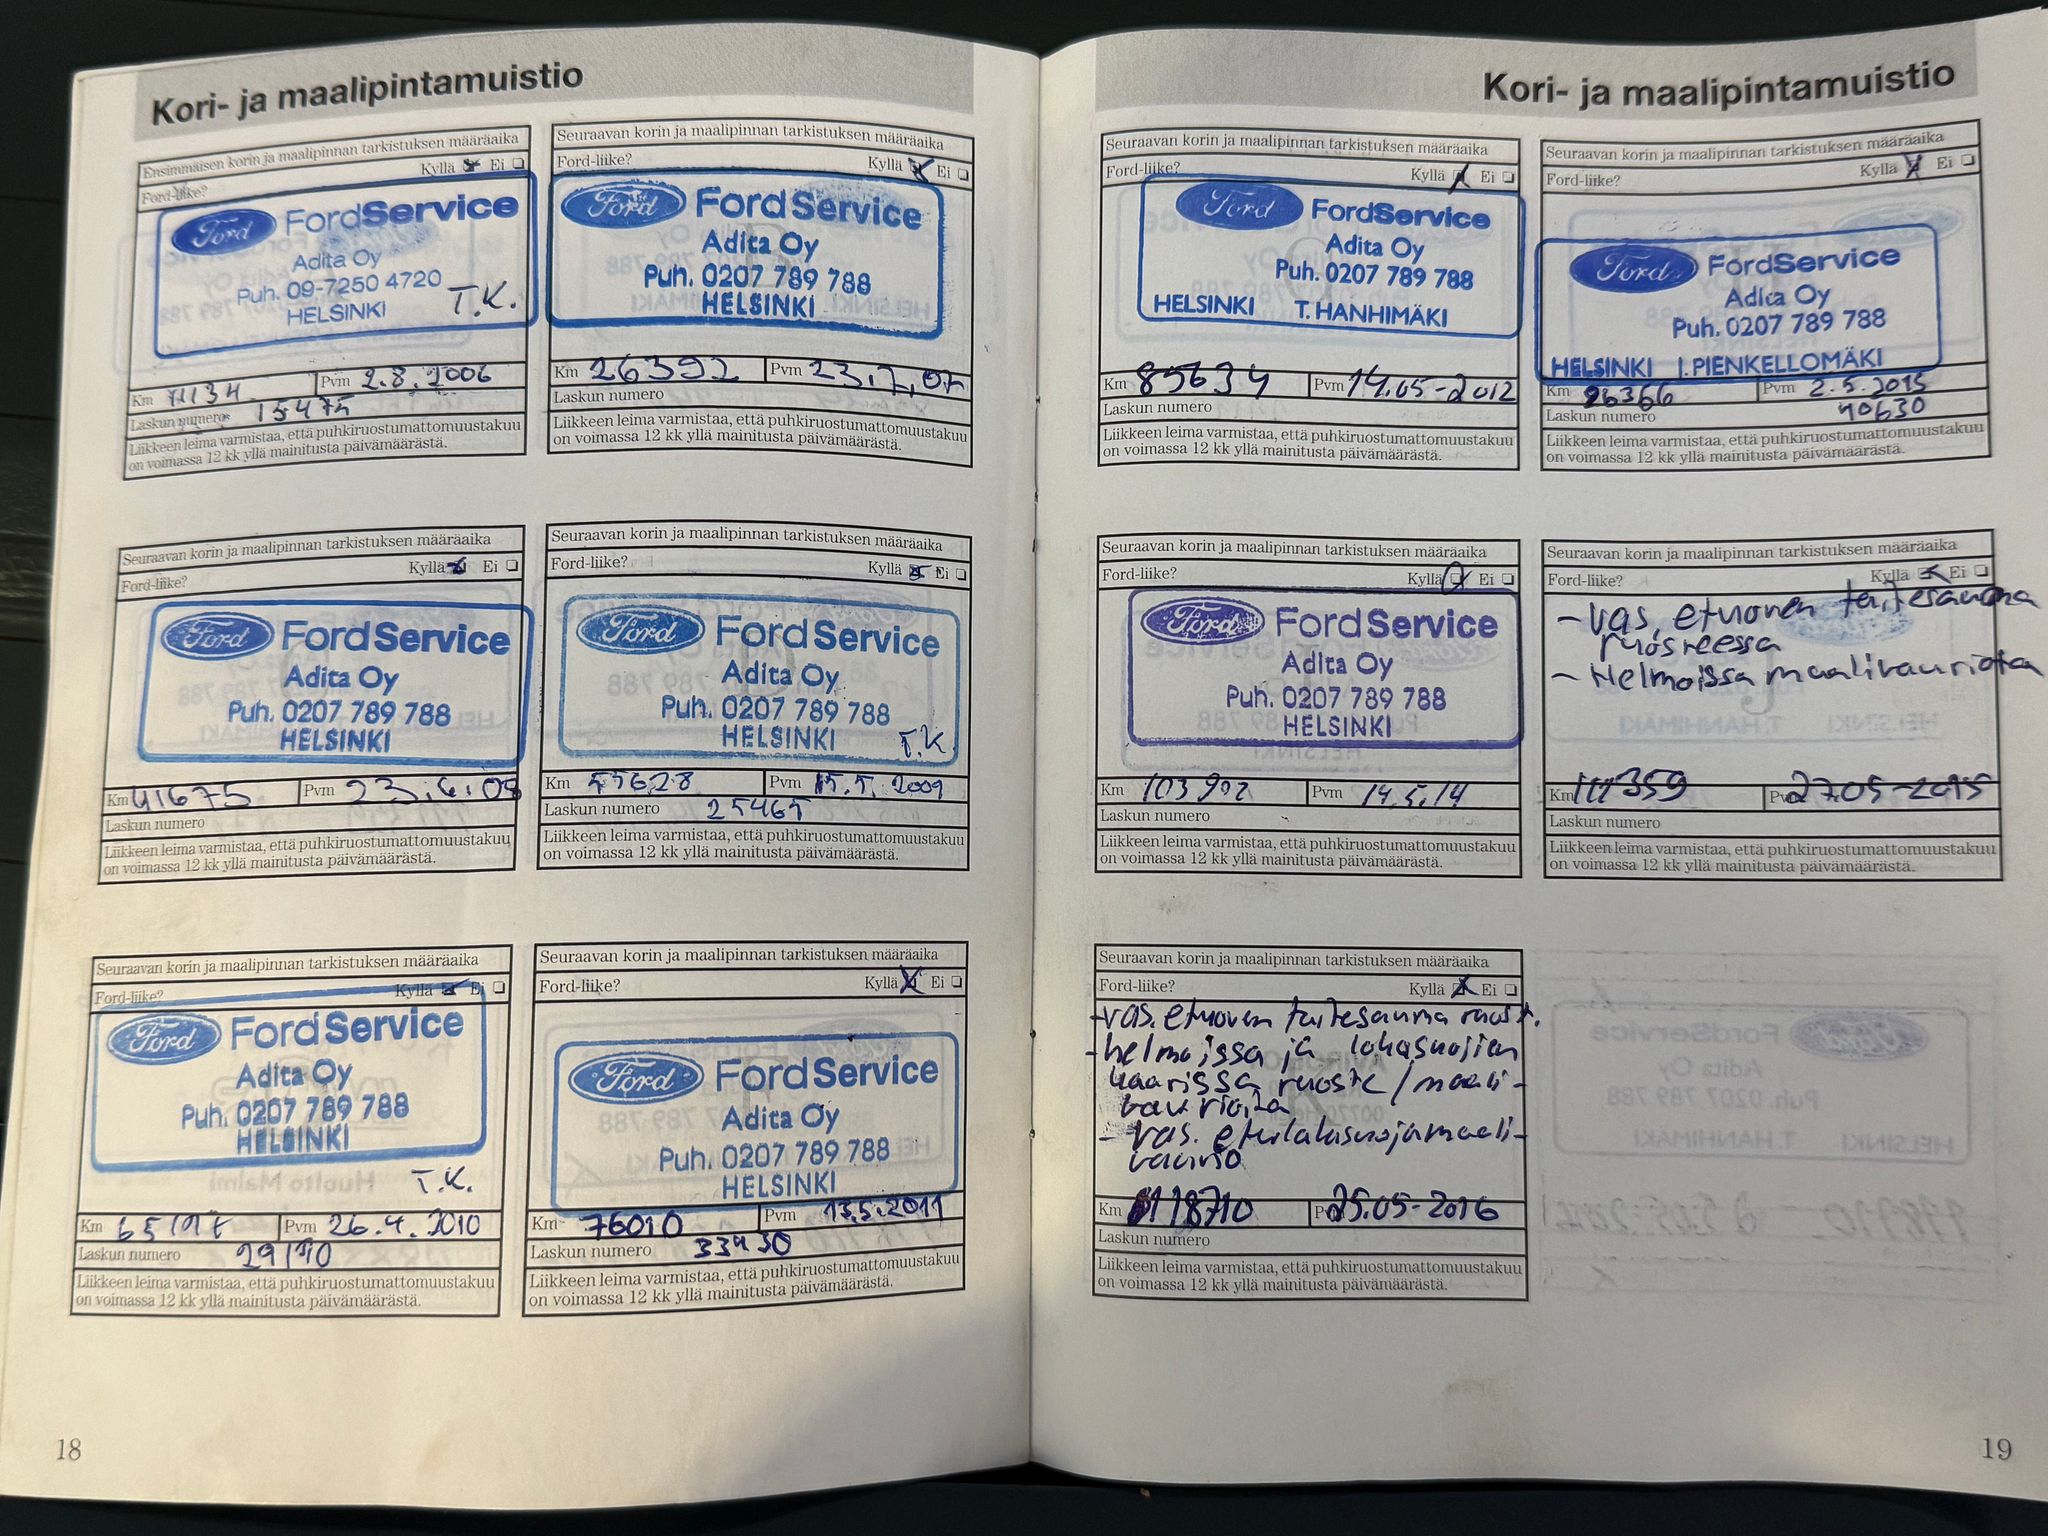 Kori- ja maalipintamuistio
Ensimmäisen korin ja maalipinnan tarkistuksen määräaika
Kyllä Ei
Ford-liike?
Ford FordService
Adita Oy
Puh. 09-7250 4720
HELSINKI
T.K.
Km 11134 Pvm 2.8.2006
Laskun numero 15475
Liikkeen leima varmistaa, että puhkiruostumattomuustakuu
on voimassa 12 kk yllä mainitusta päivämäärästä.
Seuraavan korin ja maalipinnan tarkistuksen määräaika
Ford-liike? Kyllä Ei
Ford FordService
Adita Oy
Puh. 0207 789 788
HELSINKI
Km 26392 Pvm 23.7.07
Laskun numero
Liikkeen leima varmistaa, että puhkiruostumattomuustakuu
on voimassa 12 kk yllä mainitusta päivämäärästä.
Seuraavan korin ja maalipinnan tarkistuksen määräaika
Kyllä Ei
Ford-liike?
Ford FordService
Adita Oy
Puh. 0207 789 788
HELSINKI
Km 41675 Pvm 23.6.08
Laskun numero
Liikkeen leima varmistaa, että puhkiruostumattomuustakuu
on voimassa 12 kk yllä mainitusta päivämäärästä.
Seuraavan korin ja maalipinnan tarkistuksen määräaika
Ford-liike? Kyllä Ei
Ford FordService
Adita Oy
Puh. 0207 789 788
HELSINKI T.K
Km 55628 Pvm 15.5.2009
Laskun numero 25465
Liikkeen leima varmistaa, että puhkiruostumattomuustakuu
on voimassa 12 kk yllä mainitusta päivämäärästä.
Seuraavan korin ja maalipinnan tarkistuksen määräaika
Ford-liike? Kyllä Ei
Ford FordService
Adita Oy
Puh. 0207 789 788
HELSINKI
T.K.
Km Pvm 26.4.2010
Laskun numero
Liikkeen leima varmistaa, että puhkiruostumattomuustakuu
on voimassa 12 kk yllä mainitusta päivämäärästä.
Seuraavan korin ja maalipinnan tarkistuksen määräaika
Ford-liike? Kyllä Ei
Ford FordService
Adita Oy
Puh. 0207 789 788
HELSINKI
Km 76010 Pvm 13.5.2011
Laskun numero 33430
Liikkeen leima varmistaa, että puhkiruostumattomuustakuu
on voimassa 12 kk yllä mainitusta päivämäärästä.
18
Kori- ja maalipintamuistio
Seuraavan korin ja maalipinnan tarkistuksen määräaika
Ford-liike? Kyllä Ei
Ford FordService
Adita Oy
Puh. 0207 789 788
HELSINKI T. HANHIMÄKI
Km 85634 Pvm 14.05-2012
Laskun numero
Liikkeen leima varmistaa, että puhkiruostumattomuustakuu
on voimassa 12 kk yllä mainitusta päivämäärästä.
Seuraavan korin ja maalipinnan tarkistuksen määräaika
Ford-liike? Kyllä Ei
Ford FordService
Adita Oy
Puh. 0207 789 788
HELSINKI J. PIENKELLOMÄKI
Km 96366 Pvm
Laskun numero 40630
Liikkeen leima varmistaa, että puhkiruostumattomuustakuu
on voimassa 12 kk yllä mainitusta päivämäärästä.
Seuraavan korin ja maalipinnan tarkistuksen määräaika
Ford-liike? Kyllä Ei
Ford FordService
Adita Oy
Puh. 0207 789 788
HELSINKI
Km 103902 Pvm 14.5.14
Laskun numero
Liikkeen leima varmistaa, että puhkiruostumattomuustakuu
on voimassa 12 kk yllä mainitusta päivämäärästä.
Seuraavan korin ja maalipinnan tarkistuksen määräaika
Ford-liike? Kyllä Ei
- vas. etuoven taitesauma
ruosteessa
- Helmoissa maalivaurioita
Km 111359 Pvm 27.05-2015
Laskun numero
Liikkeen leima varmistaa, että puhkiruostumattomuustakuu
on voimassa 12 kk yllä mainitusta päivämäärästä.
Seuraavan korin ja maalipinnan tarkistuksen määräaika
Ford-liike? Kyllä Ei
- vas. etuoven taitesauma ruost.
- helmoissa ja lokasuojien
kaarissa ruoste/maali-
vaurioita
- vas. etulokasuoja maali-
vaurio
Km 118710 Pvm 25.05-2016
Laskun numero
Liikkeen leima varmistaa, että puhkiruostumattomuustakuu
on voimassa 12 kk yllä mainitusta päivämäärästä.
19